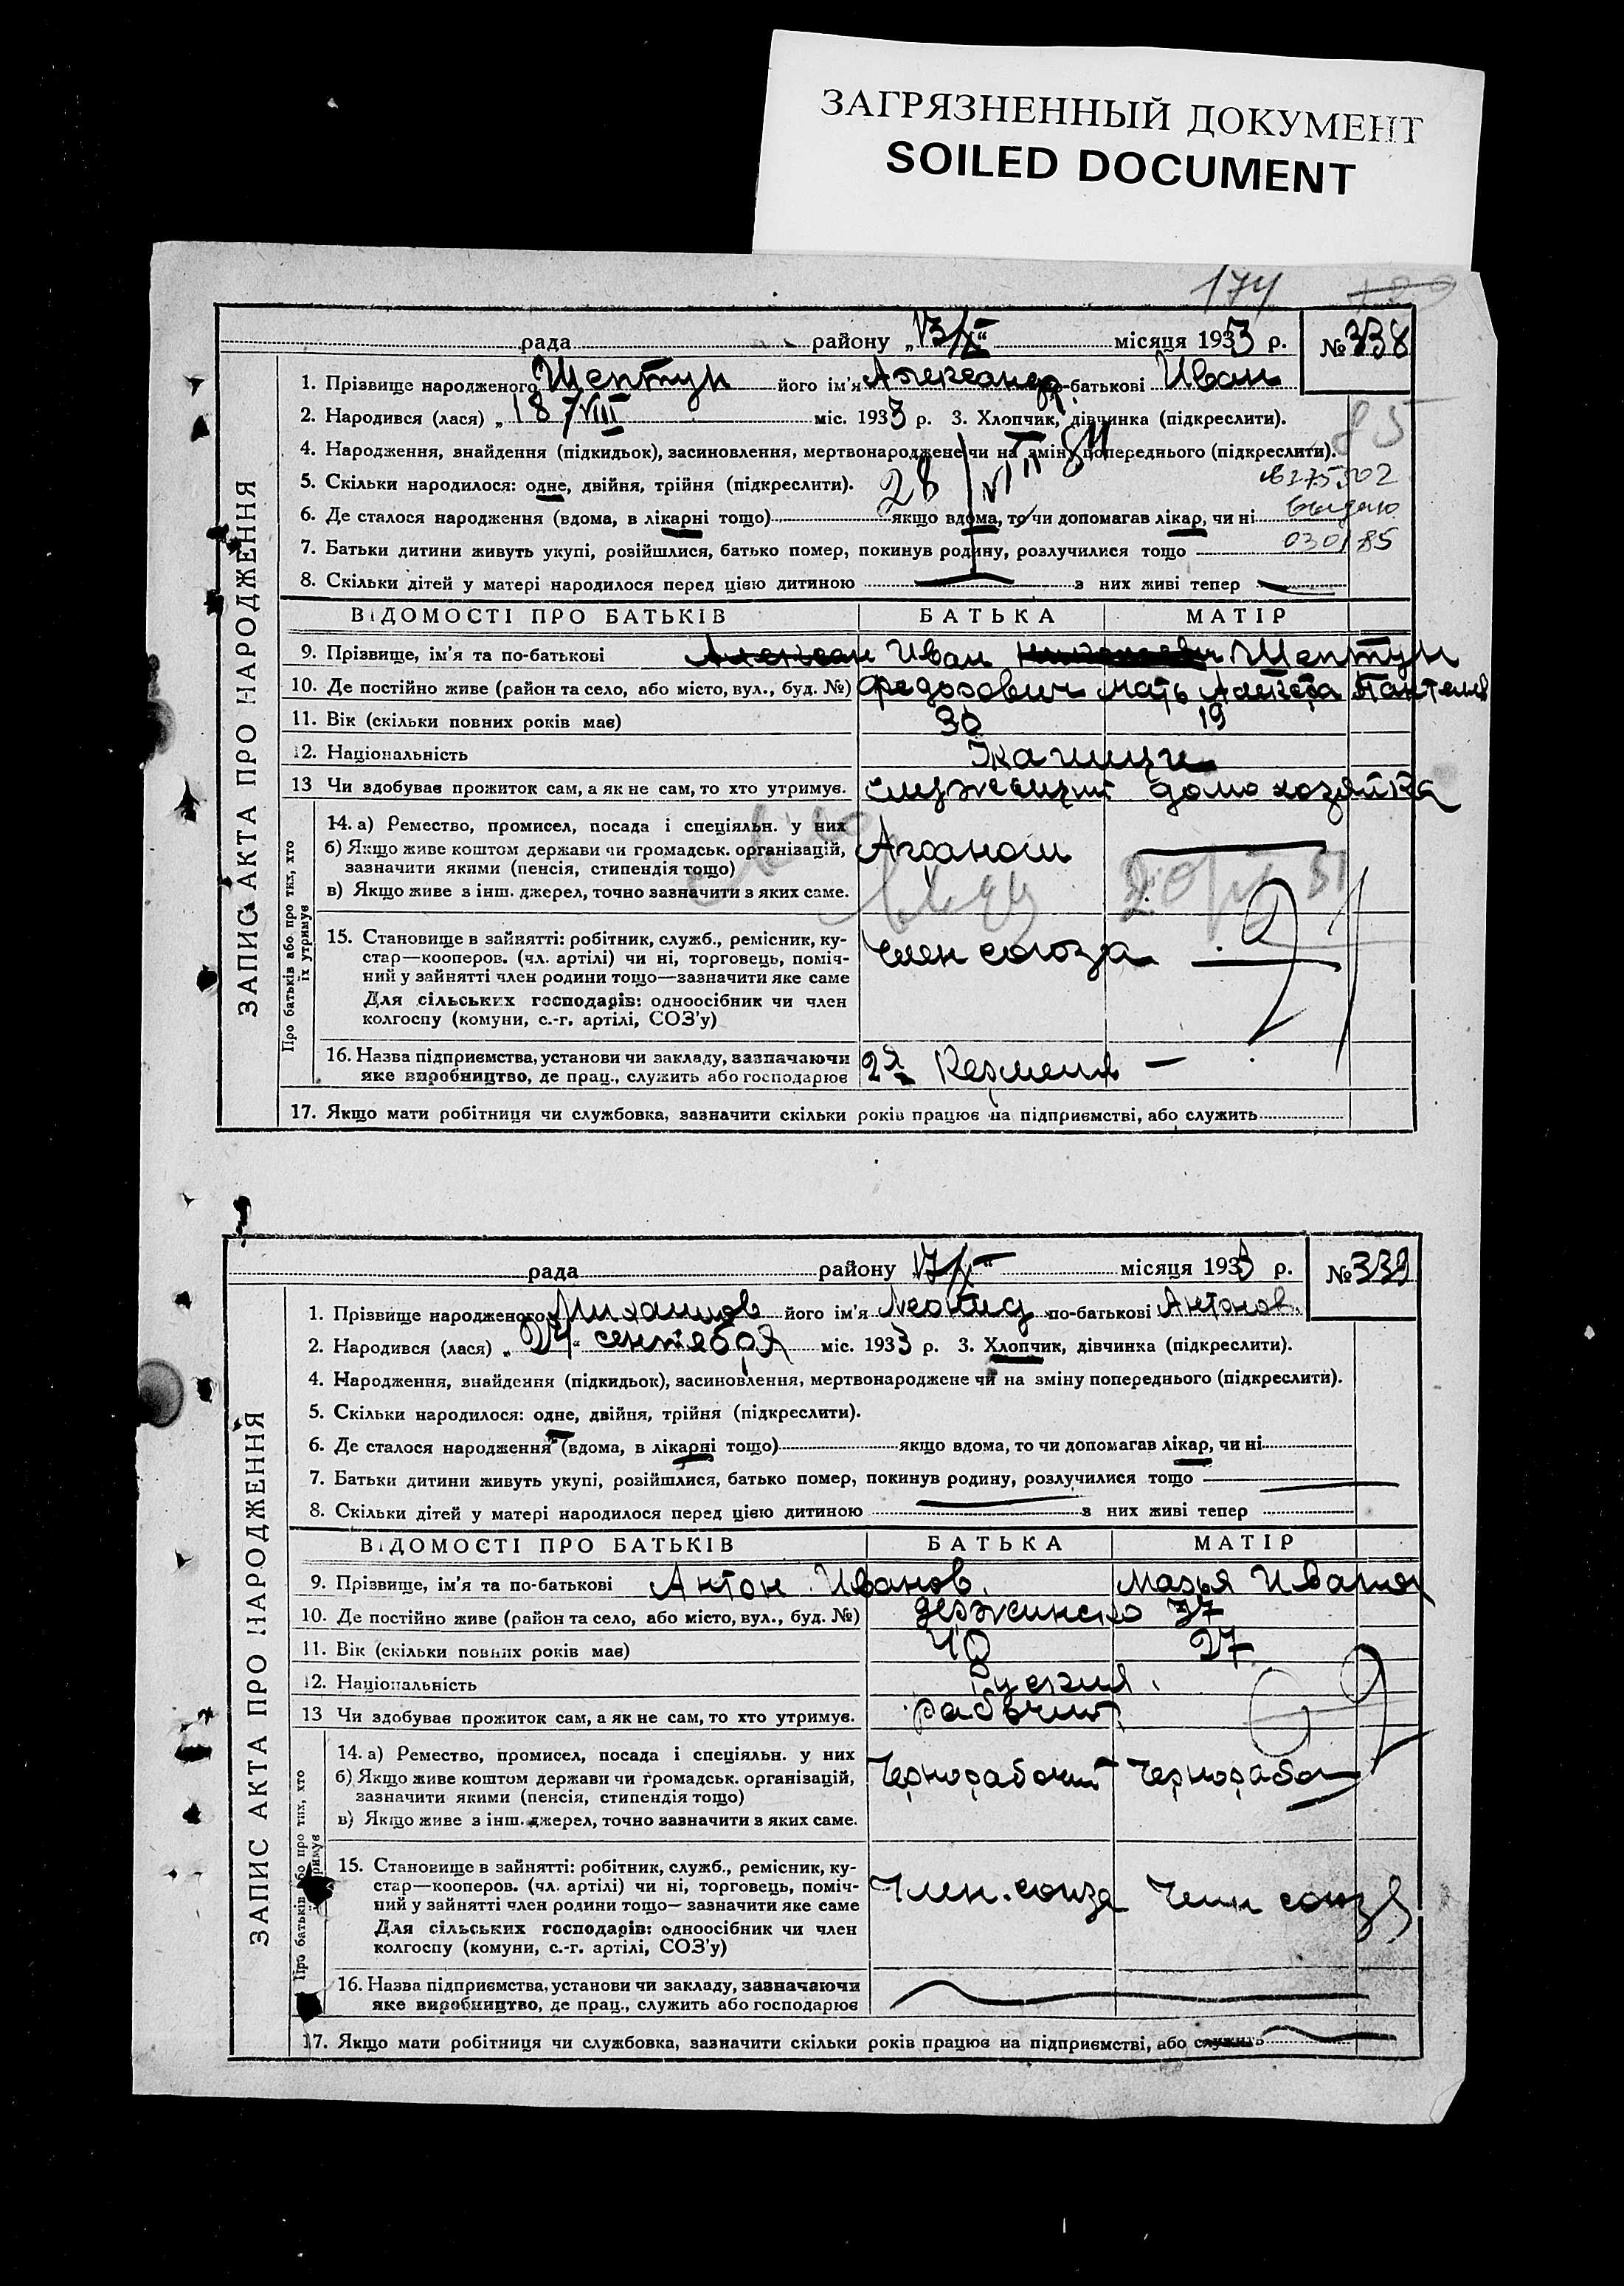 ЗАГРЯЗНЕННЫЙ ДОКУМЕНТ
SOILED DOCUMENT
174
ЗАПИС АКТА ПРО НАРОДЖЕННЯ
рада району „13/X“ місяця 1933 р. № 338
1. Прізвище народженого Шептун його ім'я Александр по-батькові Иван
2. Народився (лася) „18/VIII міс. 1933 р. 3. Хлопчик, дівчинка (підкреслити).
85
4. Народження, знайдення (підкидьок), засиновлення, мертвонароджене чи на зміну попереднього (підкреслити).
5. Скільки народилося: одне, двійня, трійня (підкреслити).
28/VI
275302
6. Де сталося народження (вдома, в лікарні тощо) якщо вдома, то чи допомагав лікар, чи ні
выдано
7. Батьки дитини живуть укупі, розійшлися, батько помер, покинув родину, розлучилися тощо
030185
8. Скільки дітей у матері народилося перед цією дитиною з них живі тепер
ВІДОМОСТІ ПРО БАТЬКІВ БАТЬКА МАТІР
9. Прізвище, ім'я та по-батькові Иван Шептун
10. Де постійно живе (район та село, або місто, вул., буд. №) Федорович мать
11. Вік (скільки повних років має) 30 19
12. Національність
13 Чи здобуває прожиток сам, а як не сам, то хто утримує. служащий домохозяйка
Про батьків або про тих, хто їх утримує
14. а) Ремество, промисел, посада і спеціяльн. у них
б) Якщо живе коштом держави чи громадськ. організацій,
зазначити якими (пенсія, стипендія тощо)
Агроном
в) Якщо живе з інш. джерел, точно зазначити з яких саме.
15. Становище в зайнятті: робітник, служб., ремісник, ку-
стар—кооперов. (чл. артілі) чи ні, торговець, поміч-
ний у зайнятті член родини тощо—зазначити яке саме
член союза
Для сільських господарів: одноосібник чи член
колгоспу (комуни, с.-г. артілі, СОЗ'у)
16. Назва підприємства, установи чи закладу, зазначаючи
яке виробництво, де прац., служить або господарює
17. Якщо мати робітниця чи службовка, зазначити скільки років працює на підприємстві, або служить
ЗАПИС АКТА ПРО НАРОДЖЕННЯ
рада району „17/X“ місяця 1933 р. № 339
1. Прізвище народженого Михайлов його ім'я Леонид по-батькові Антонов
2. Народився (лася) „24“ сентября міс. 1933 р. 3. Хлопчик, дівчинка (підкреслити).
4. Народження, знайдення (підкидьок), засиновлення, мертвонароджене чи на зміну попереднього (підкреслити).
5. Скільки народилося: одне, двійня, трійня (підкреслити).
6. Де сталося народження (вдома, в лікарні тощо) якщо вдома, то чи допомагав лікар, чи ні
7. Батьки дитини живуть укупі, розійшлися, батько помер, покинув родину, розлучилися тощо
8. Скільки дітей у матері народилося перед цією дитиною з них живі тепер
ВІДОМОСТІ ПРО БАТЬКІВ БАТЬКА МАТІР
9. Прізвище, ім'я та по-батькові Антон Иванов. Марья
10. Де постійно живе (район та село, або місто, вул., буд. №) 37
11. Вік (скільки повних років має) 40 27
12. Національність
13 Чи здобуває прожиток сам, а як не сам, то хто утримує. рабочий
Про батьків або про тих, хто їх утримує
14. а) Ремество, промисел, посада і спеціяльн. у них
б) Якщо живе коштом держави чи громадськ. організацій,
зазначити якими (пенсія, стипендія тощо)
Чернорабочий Чернорабоч
в) Якщо живе з інш. джерел, точно зазначити з яких саме.
15. Становище в зайнятті: робітник, служб., ремісник, ку-
стар—кооперов. (чл. артілі) чи ні, торговець, поміч-
ний у зайнятті член родини тощо—зазначити яке саме
Член. союза Член союза
Для сільських господарів: одноосібник чи член
колгоспу (комуни, с.-г. артілі, СОЗ'у)
16. Назва підприємства, установи чи закладу, зазначаючи
яке виробництво, де прац., служить або господарює
17. Якщо мати робітниця чи службовка, зазначити скільки років працює на підприємстві, або служить